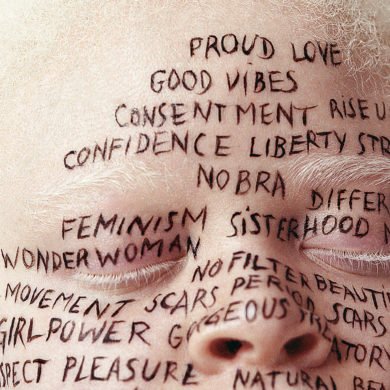 PROUD LOVE
GOOD VIBES
CONSENTMENT RISE U
CONFIDENCE LIBERTY STR
NO BRA
DIFFER
FEMINISM SISTERHOOD
WONDER WOMAN
NO FILTER BEAUTI
MOVEMENT SCARS PERIOD SCARS
GIRL POWER GORGEOUS
SPECT PLEASURE NATURAL BE